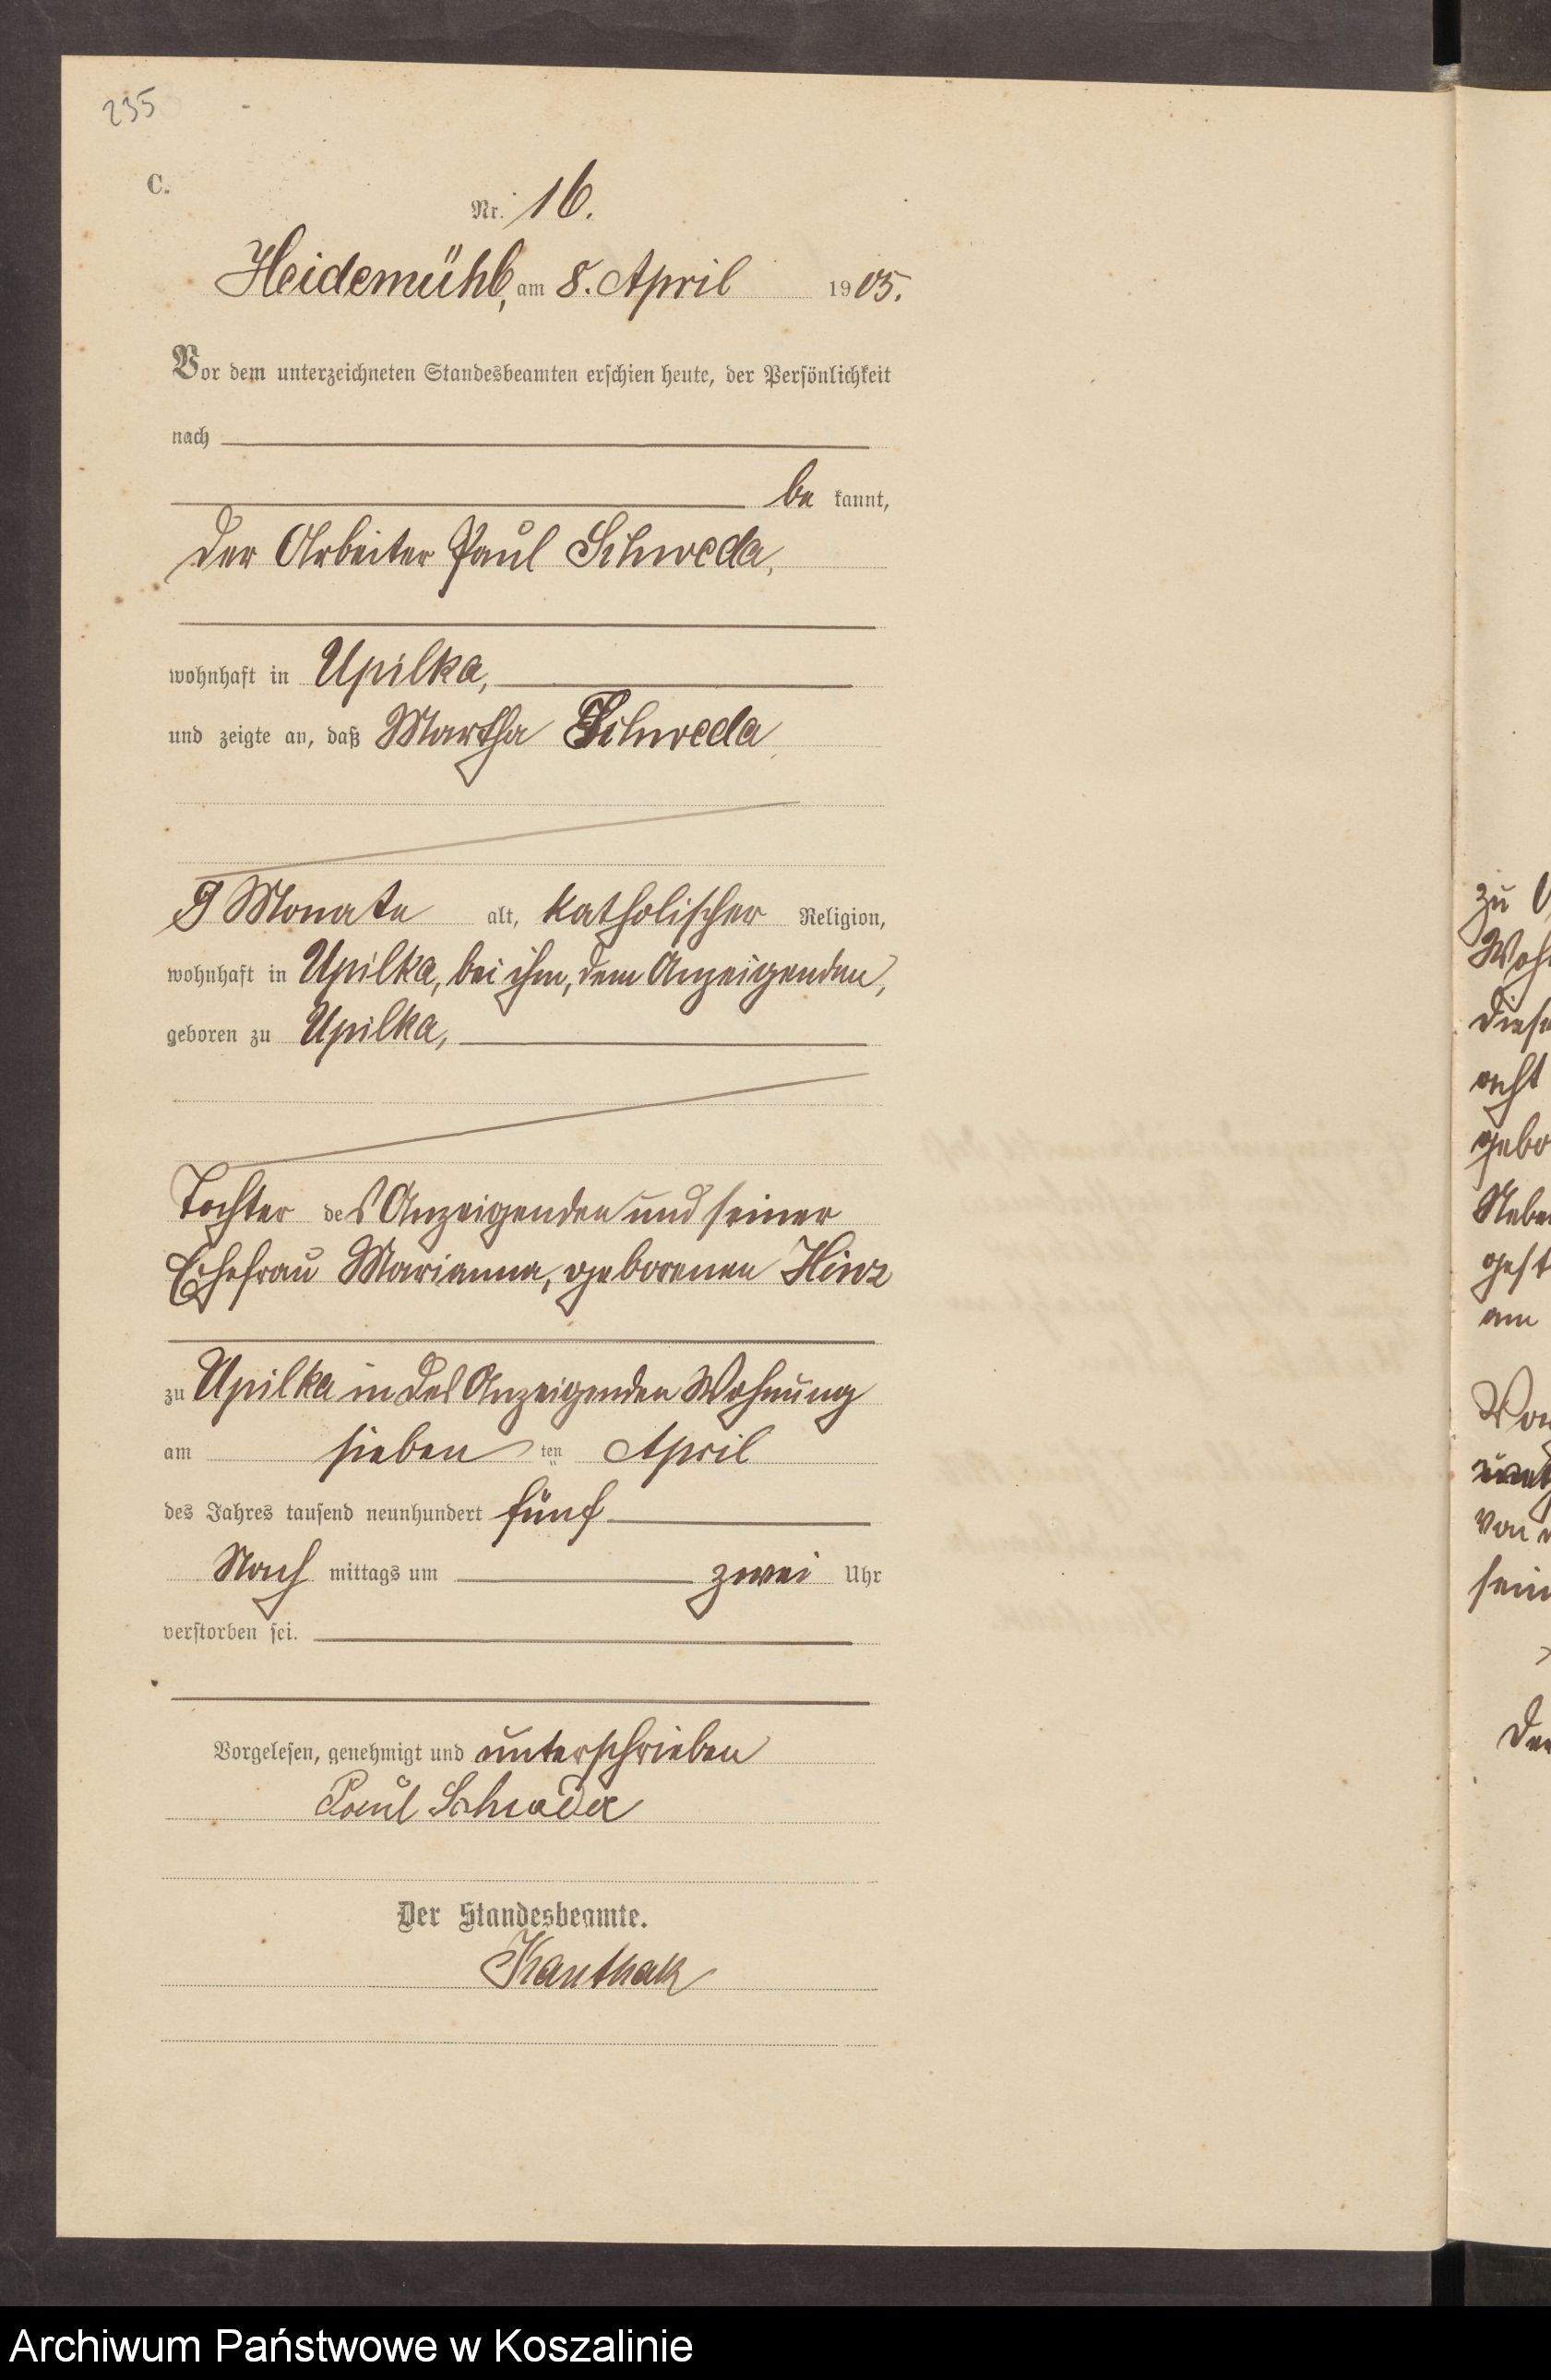 235
C.
Nr. 16.
Heidemühl, am 8. April 1905.
Vor dem unterzeichneten Standesbeamten erschien heute, der Persönlichkeit
nach
be kannt,
der Arbeiter Paul Schweda,
wohnhaft in Upilka,
und zeigte an, daß Martha Schweda,
9 Monate alt, katholischer Religion,
wohnhaft in Upilka, bei ihm, dem Anzeigenden,
geboren zu Upilka,
Tochter des Anzeigenden und seiner
Ehefrau Marianna, geborenen Hinz
zu Upilka in des Anzeigenden Wohnung
am sieben ten April
des Jahres tausend neunhundert fünf
Nach mittags um zwei Uhr
verstorben sei.
Vorgelesen, genehmigt und unterschrieben
Paul Schweda
Der Standesbeamte.
Kauthak
zu
diese
acht
gebo
Nebe
gest
am
Vo
von
sein
Der
Archiwum Państwowe w Koszalinie